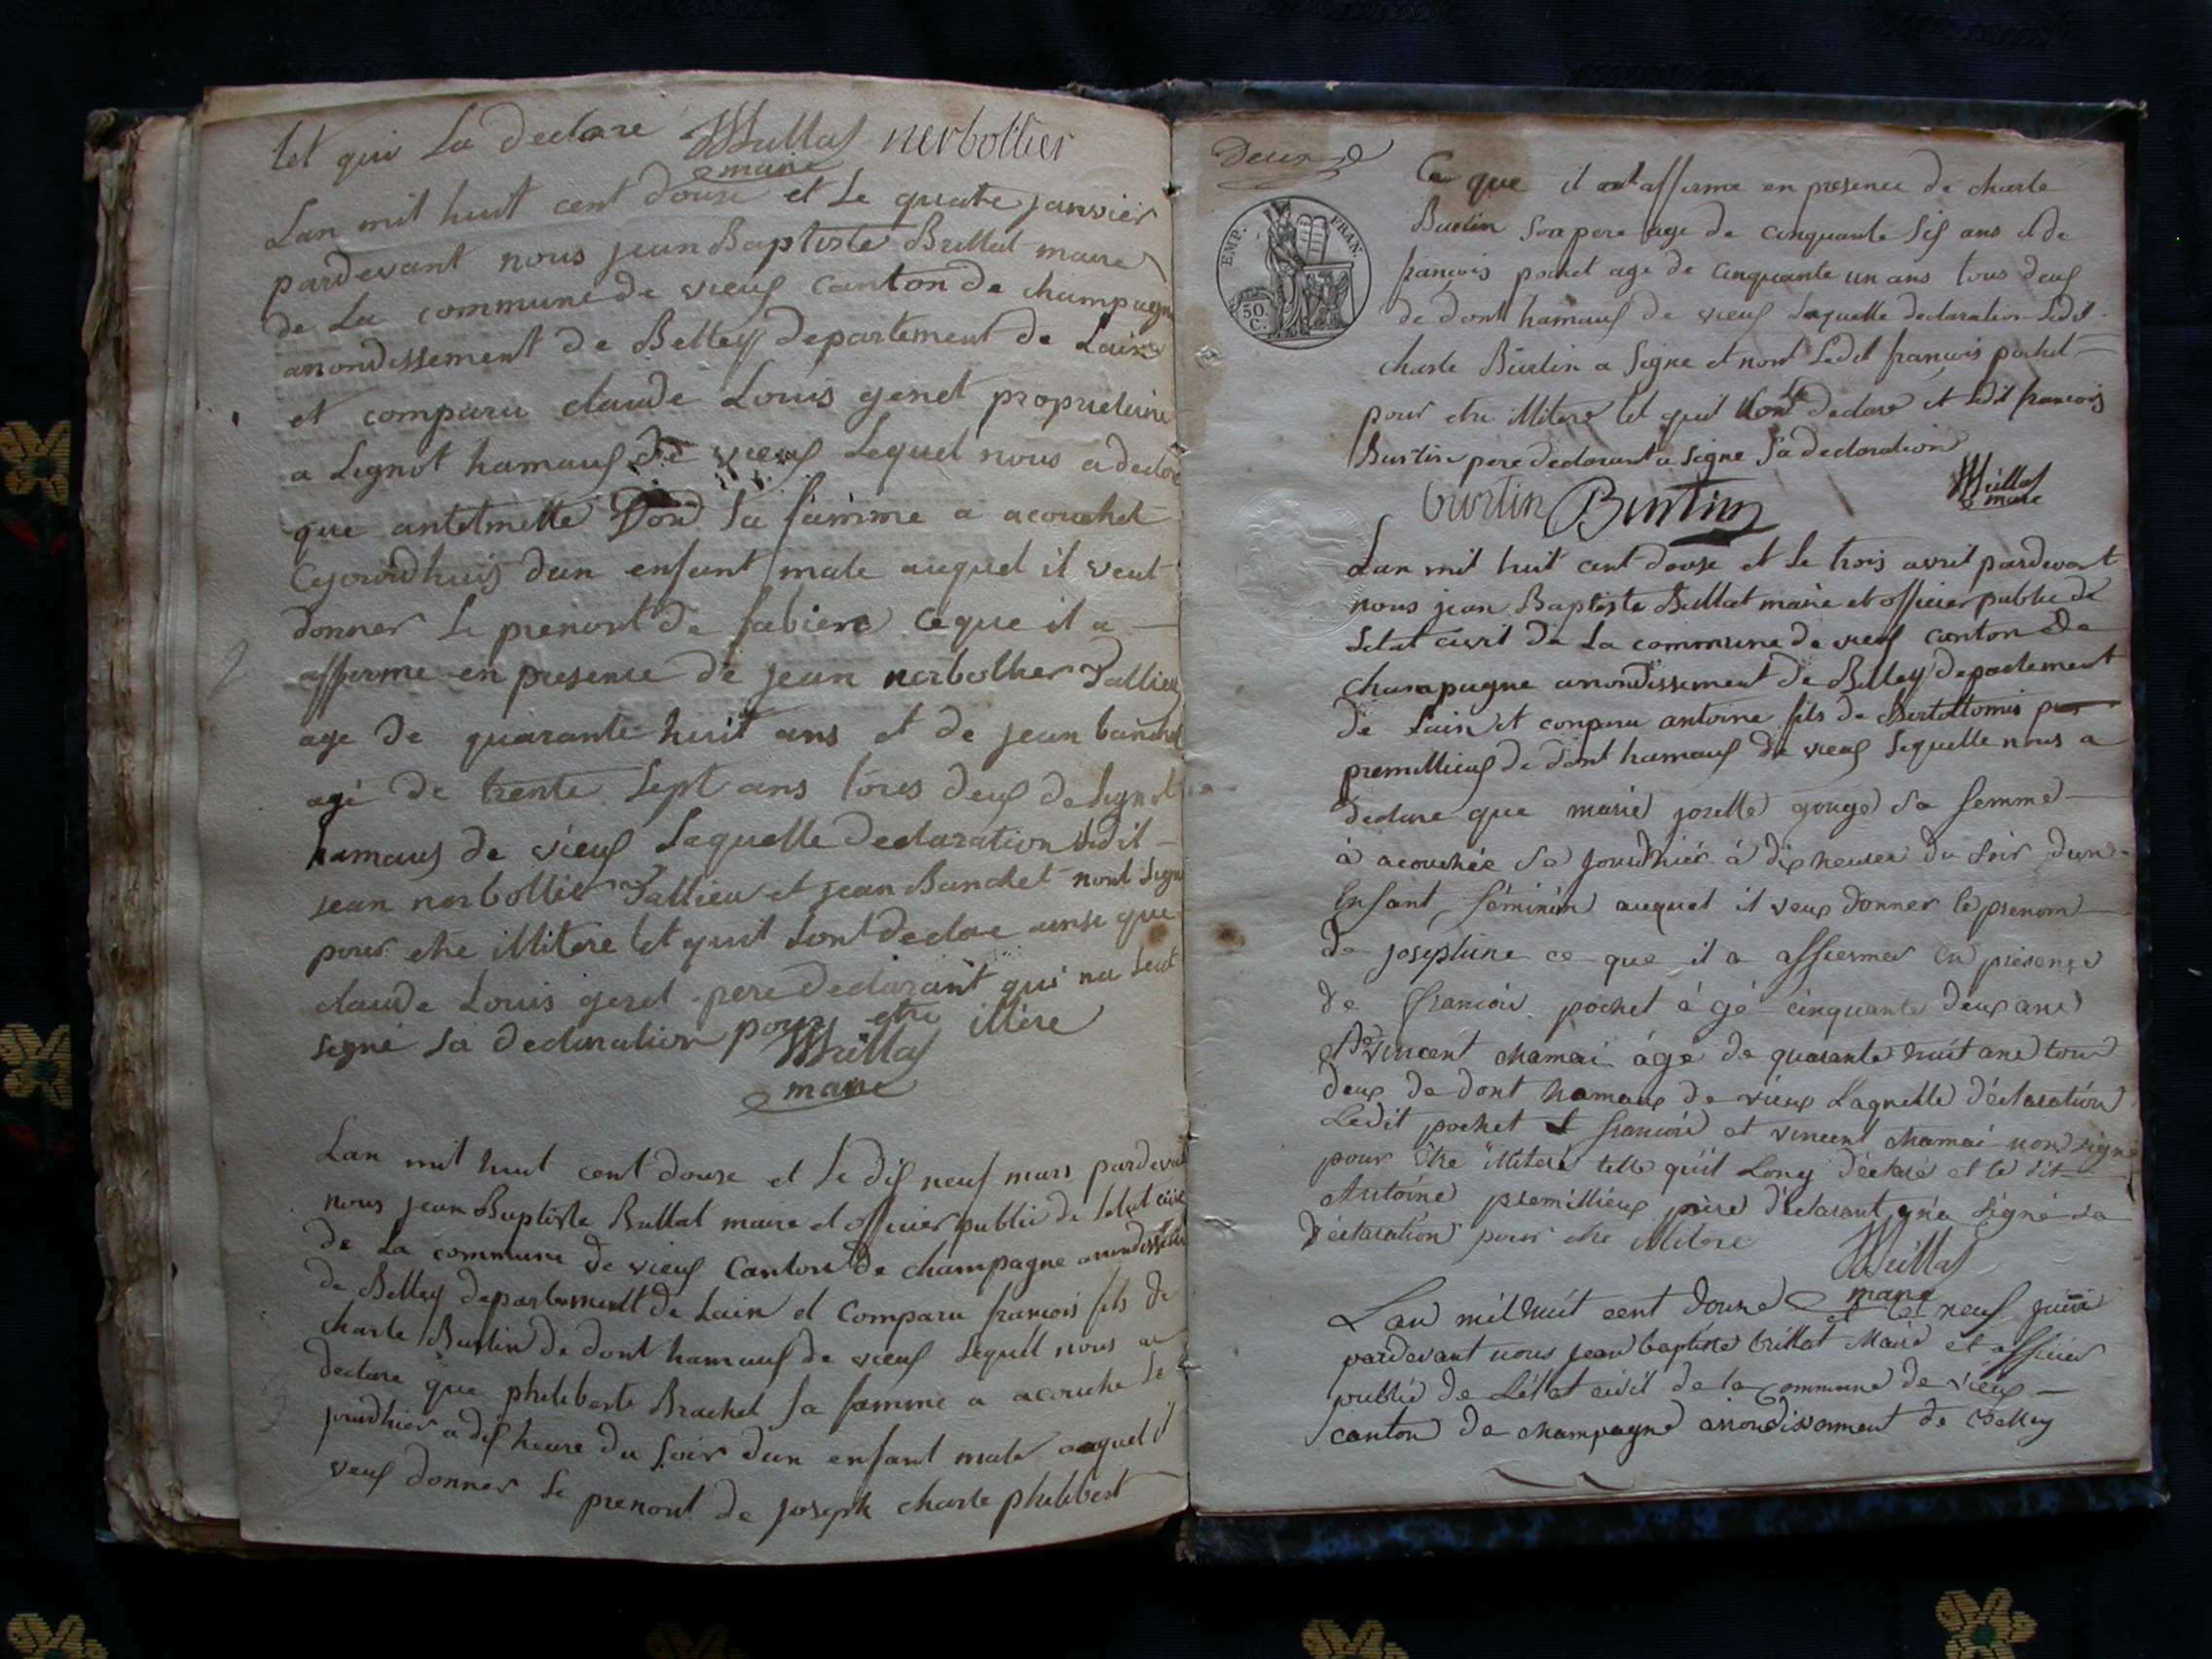 tel qui La declare Brillat nerbollier
maire
Lan mil huit cent douze et Le quatre janvier
pardevant nous jean Baptiste Brillat maire
de La commune de vieuf canton de champagne
arrondissement de Belley departement de Lain
et comparu claude Louis genet proprietaire
a Lignot hamauf de vieuf Lequel nous a declare
que antelmette sa famme a acouchet
Cejourdhuis dun enfant male auquel il veut
donner Le prenont de fabien ce que il a
afferme en presence de jean nerbollier Tallieu
age de quarante huit ans et de jean banchet
age de trente sept ans tous deuf de Lignot
hamauf de vieuf Laquelle declaration Ledit
jean nerbollier Tallieu et jean Banchet nont signe
pour etre illitere tel quil Lont declare ainsi que
claude Louis genet pere declarant qui na seut
signe sa declaration pour etre illitere
Brillat
maire
Lan mil huit cent douze et Le dif neuf mars pardevant
nous jean Baptiste Brillat maire et officier public de Letat civil
de La commune de vieuf Canton de champagne arrondissement
de Belley departement de Lain et Comparu francois fils de
charle Burtin de dont hamauf de vieuf Lequel nous a
declare que philiberte Brachet sa famme a acouche Le
jourdhier a dif heure du soir dun enfant male auquel il
veuf donner Le prenont de joseph charle philibert
Deux
EMP. FRAN.
50 C.
Ce que il a afferme en presence de charle
Burtin son pere age de cinquante sif ans et de
francois pochet age de cinquante un ans tous deuf
de dont hamauf de vieuf Laquelle declaration Ledit
charle Burtin a signe et nont Ledit francois pochet
pour etre illitere tel quil Lont declare et Ledit francois
Burtin pere declarant a signe sa declaration
burtin Burtin Brillat
maire
Lan mil huit cent douze et Le trois avril pardevant
nous jean Baptiste Brillat maire et officier public de
Letat civil de La commune de vieuf canton de
champagne arrondissement de Belley departement
de Lain et conparu antoine fils de Bertollomis
premillieuf de dont hamauf de vieuf Lequelle nous a
declare que marie jozette gouge sa femme
à acouchée Le jourdhier à dix heures du soir dun
enfant féminin auquel il veux donner le prenom
de joséphine ce que il a affermer en présence
de francois pochet àgé cinquante deux ans
et De vincent chamai âgé de quarante huit ans tous
deux de dont hamaux de vieux Laquelle déclaration
Ledit pochet francois et vincent chamai non signé
pour être illiteré telle qu'il Lont déclaré et le dit
Antoine premillieux père déclarant n'a signé sa
déclaration pour etre illiteré
Brillat
maire
Lan mil huit cent douze et neuf
pardevant nous jean baptiste brillat Maire et officier
public de L'état civil de la commune de vieux
canton de champagne arrondissement de Belley